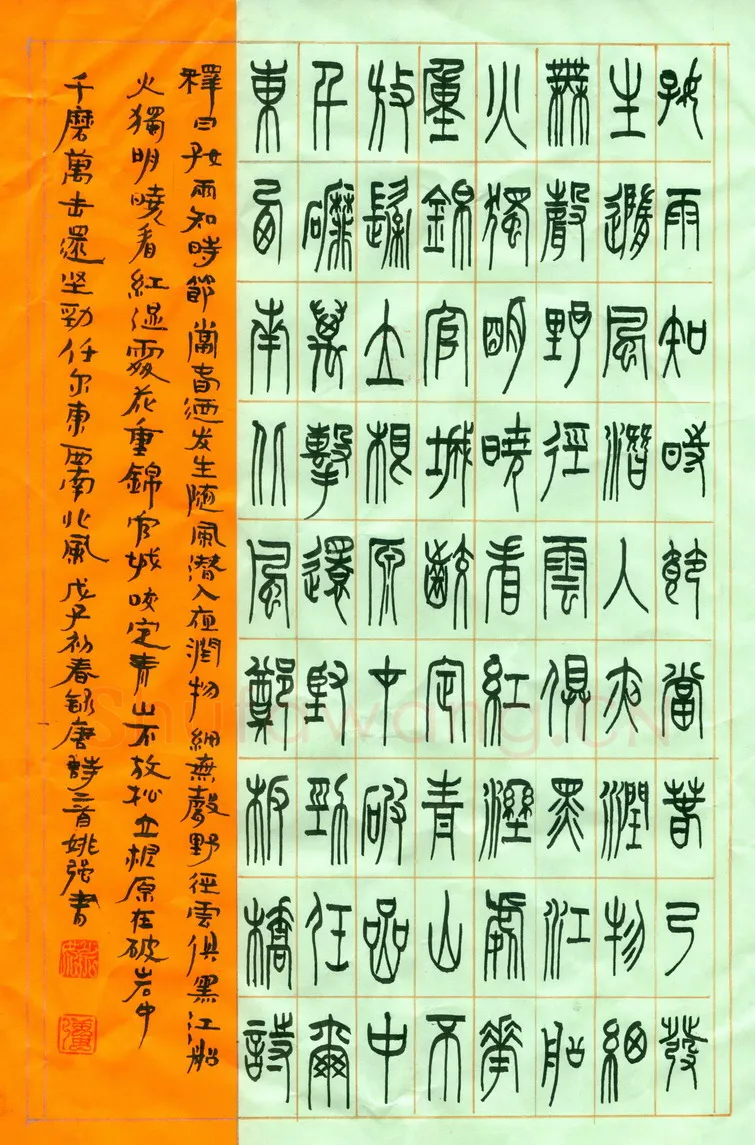 好雨知時節當春乃發
生隨風潛入夜潤物細
無聲野徑雲俱黑江船
火獨明曉看紅溼處華
重錦官城齩定青山不
放鬆立根原在破喦中
千磨萬擊還堅勁任爾
東西南北風鄭板橋詩
釋曰好雨知時節當春迺发生随風潜入夜潤物細無聲野徑雲俱黑江船
火獨明曉看紅湿處花重錦官城咬定青山不放松立根原在破岩中
千磨萬击還坚勁任尔東西南北風戊子初春録唐詩二首姚强書
Shufawang.CN